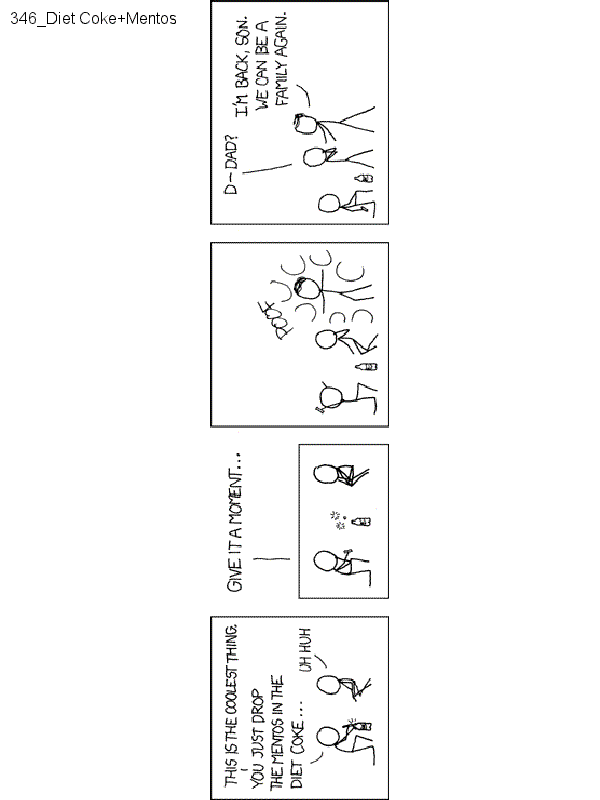 346_Diet Coke+Mentos
THIS IS THE COOLEST THING.
YOU JUST DROP
THE MENTOS IN THE
DIET COKE...
UH HUH
GIVE IT A MOMENT...
POOF
D-DAD?
I'M BACK, SON.
WE CAN BE A
FAMILY AGAIN.